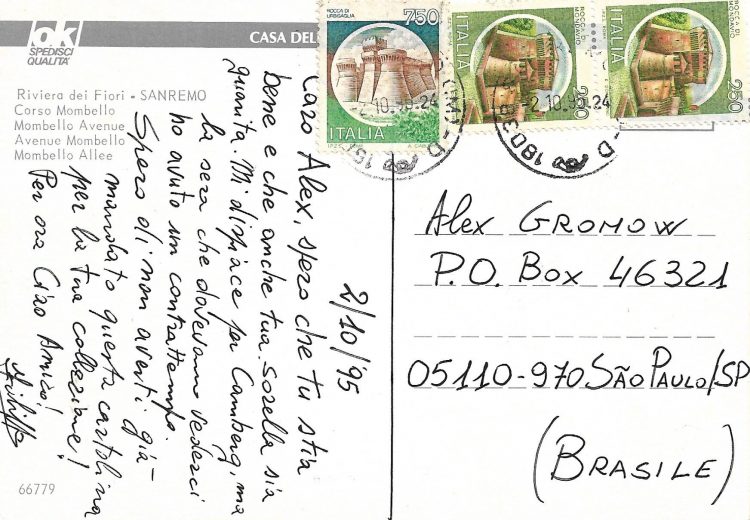 ok
SPEDISCI
QUALITÀ
CASA DEL
Riviera dei Fiori - SANREMO
Corso Mombello
Mombello Avenue
Avenue Mombello
Mombello Allee
66779
2/10/95
Caro Alex, spero che tu stia
bene e che anche tua sorella sia
guarita. Mi dispiace per Camberg, ma
la sera che dovevamo vederci
ho avuto un contrattempo.
Spero di non averti già
mandato questa cartolina
per la tua collezione!
Per ora Ciao Amico!
ROCCA DI
URBISAGLIA
750
ITALIA
ROCCA DI
MONDAVIO
ITALIA
250
ROCCA DI
MONDAVIO
ITALIA
250
-2.10.95.24
Alex GROMOW
P.O. Box 46321
05110-970 SÃO PAULO/SP
(BRASILE)